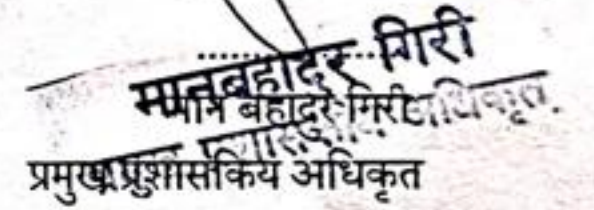 ....................
मानबहादुर गिरी
मान बहादुर गिरी
प्रमुख प्रशासकिय अधिकृत